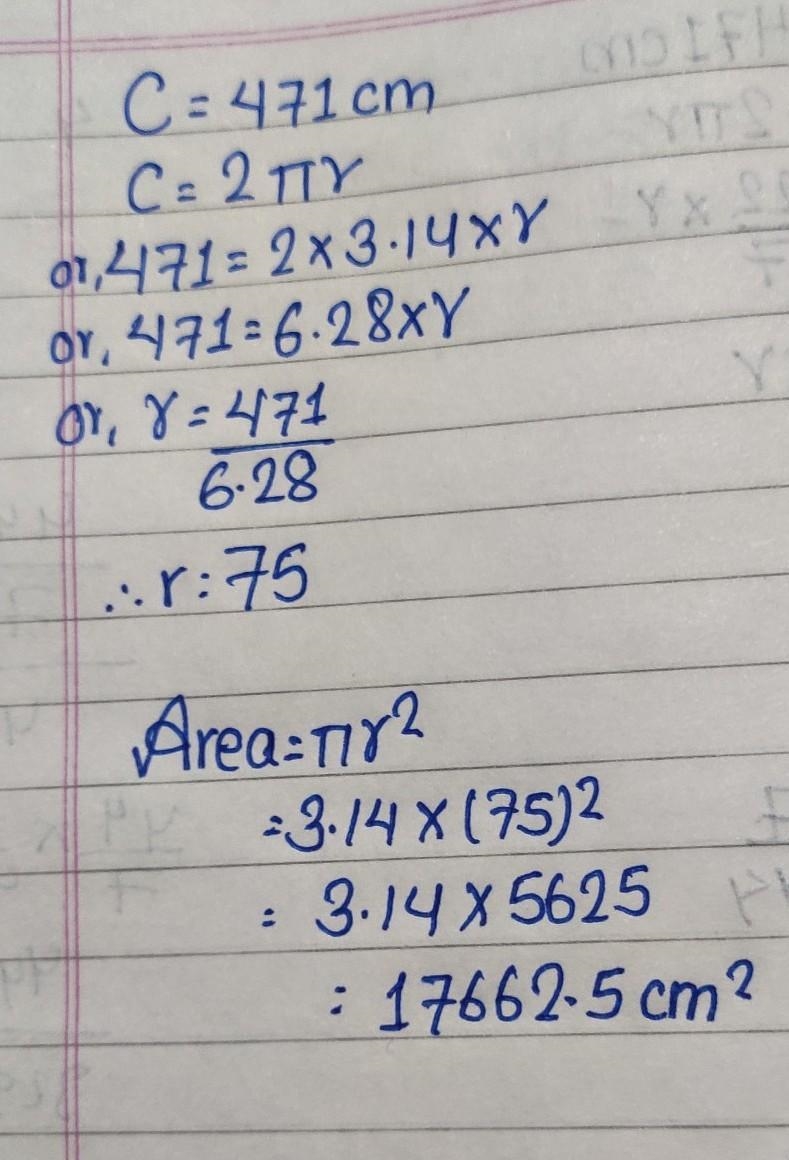 C = 471 cm
C = 2πr
or, 471 = 2 × 3.14 × r
or, 471 = 6.28 × r
or, r = 471
6.28
∴ r : 75
Area = πr²
= 3.14 × (75)²
= 3.14 × 5625
= 17662.5 cm²